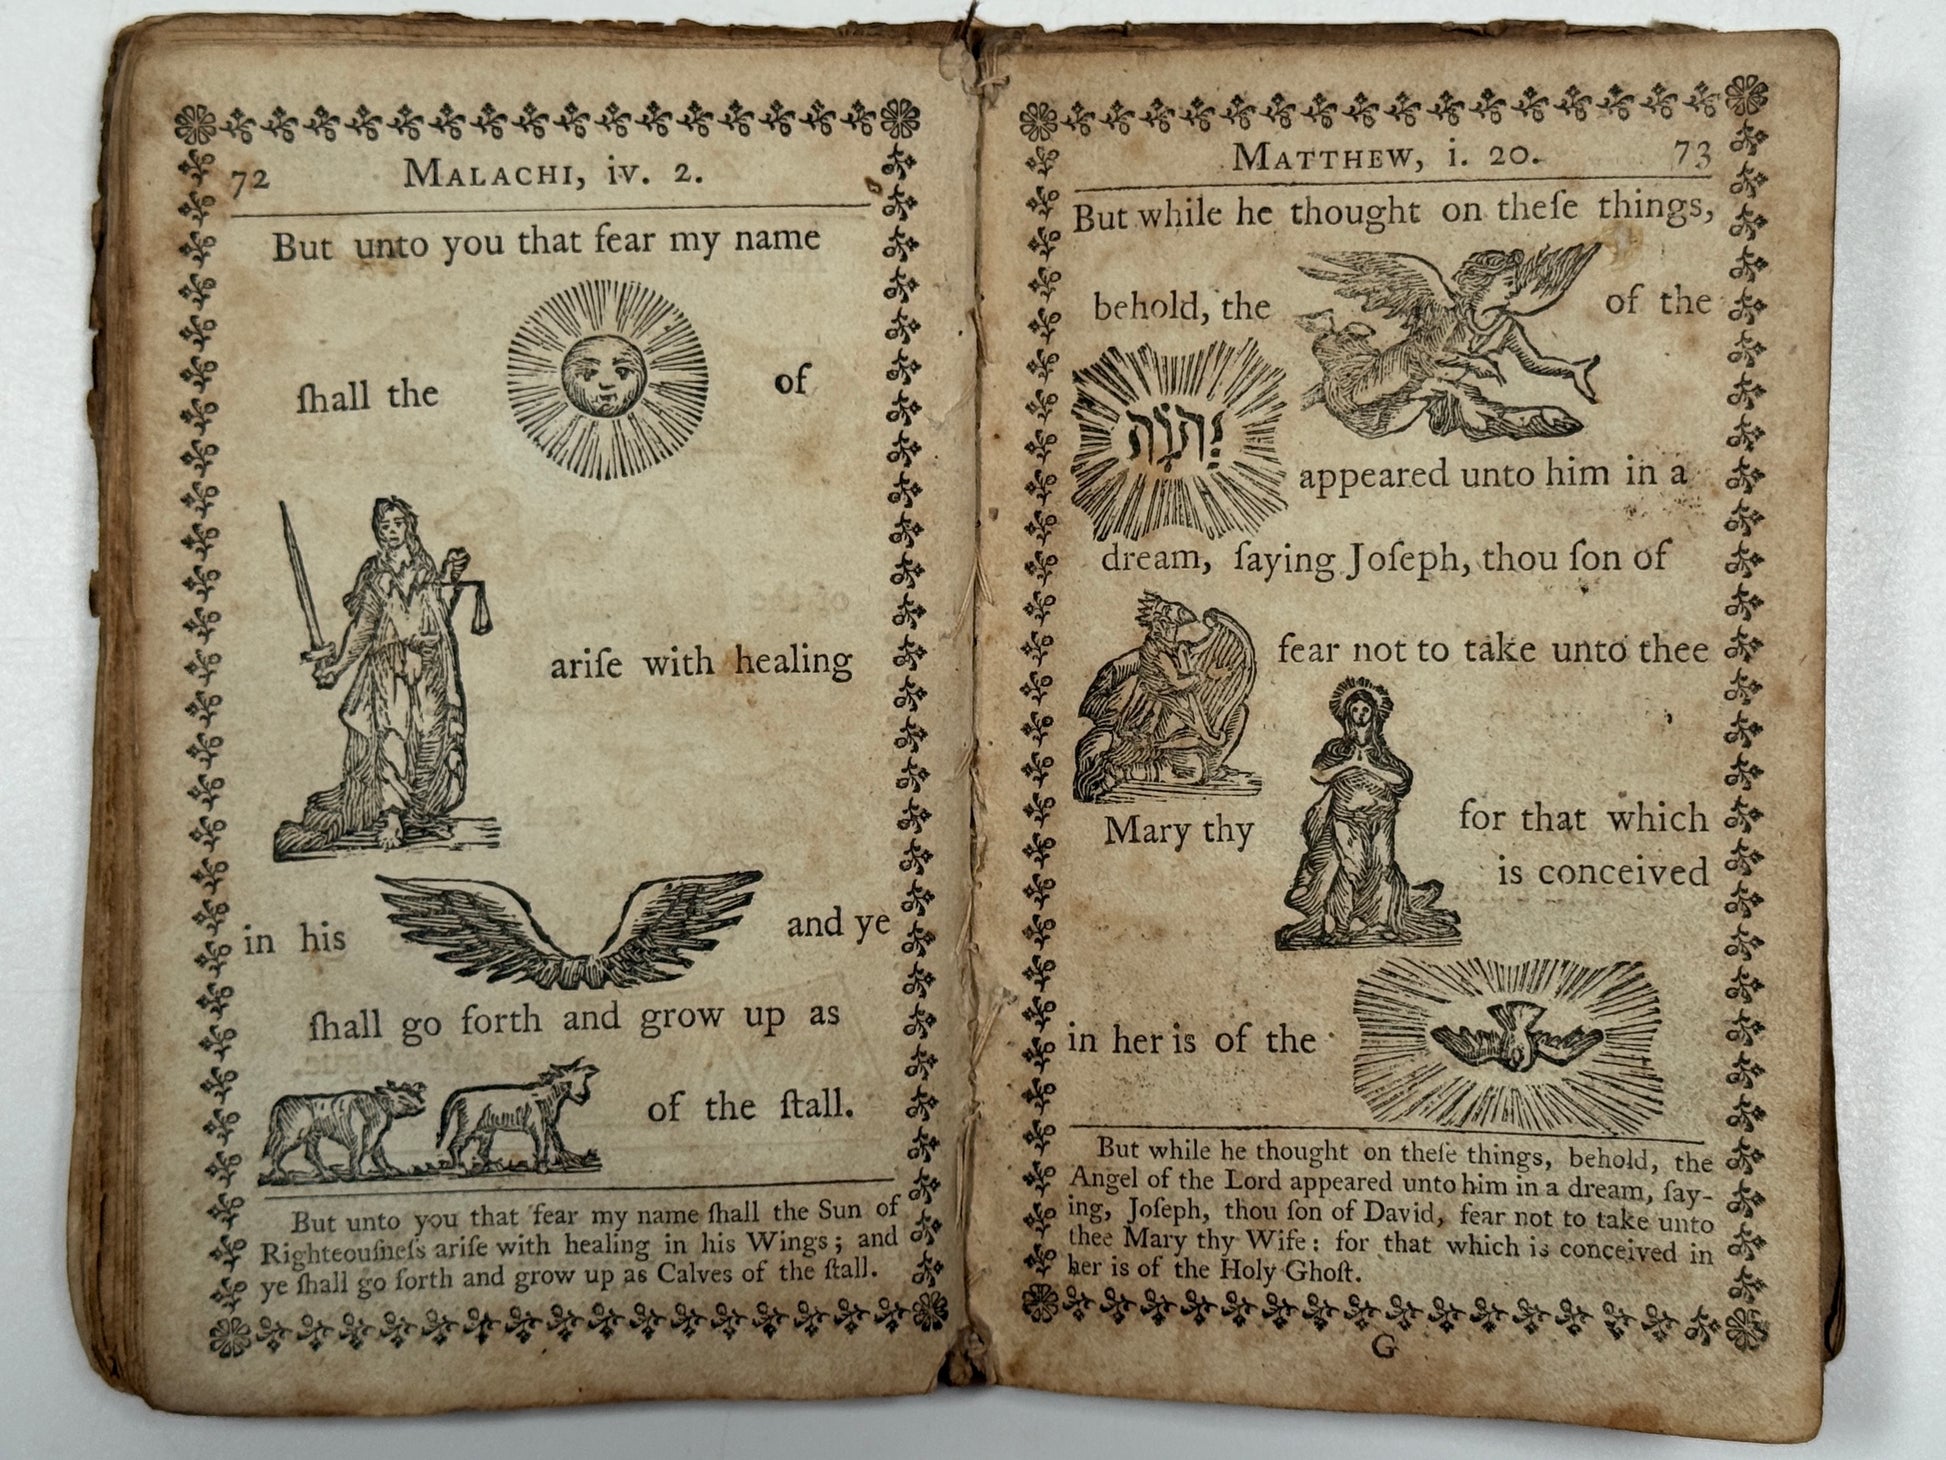 72 MALACHI, iv. 2.
But unto you that fear my name
ſhall the of
ariſe with healing
in his and ye
ſhall go forth and grow up as
of the ſtall.
But unto you that fear my name ſhall the Sun of
Righteouſneſs ariſe with healing in his Wings; and
ye ſhall go forth and grow up as Calves of the ſtall.
MATTHEW, i. 20. 73
But while he thought on theſe things,
behold, the of the
יְהוָֹה
appeared unto him in a
dream, ſaying Joſeph, thou ſon of
fear not to take unto thee
Mary thy for that which
is conceived
in her is of the
But while he thought on theſe things, behold, the
Angel of the Lord appeared unto him in a dream, ſay-
ing, Joſeph, thou ſon of David, fear not to take unto
thee Mary thy Wife: for that which is conceived in
her is of the Holy Ghoſt.
G